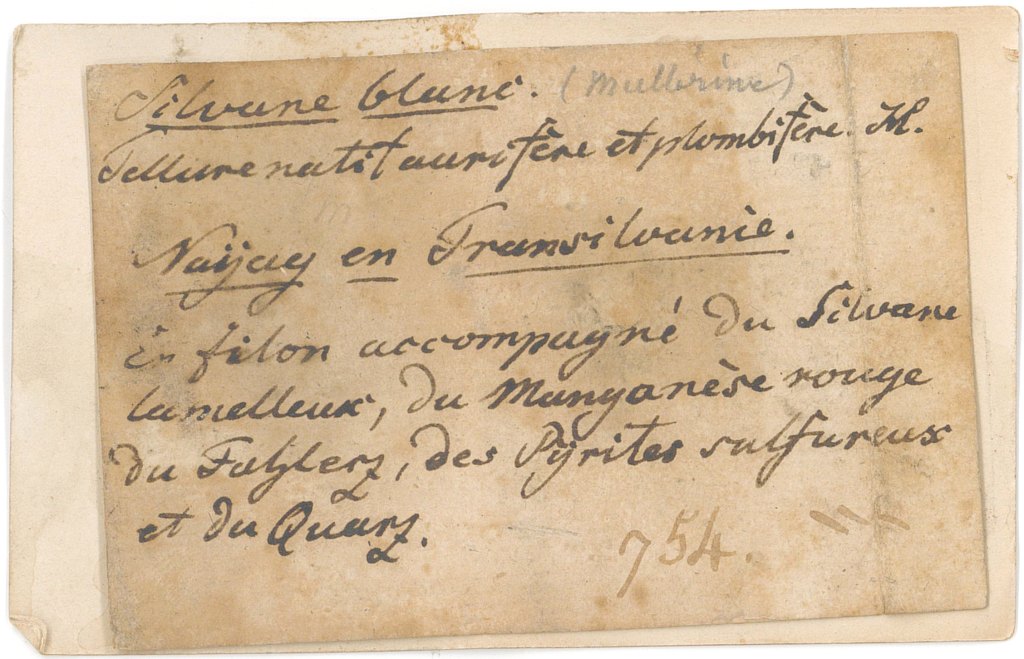 Silvane blanc. (Mullerine)
Tellure natif aurifère et plombifère. H.
Naÿag en Transilvanie.
En filon accompagné du Silvane
lamelleux, du Manganèse rouge
du Fahlerz, des Pÿrites sulfureux
et du Quarz.
754.